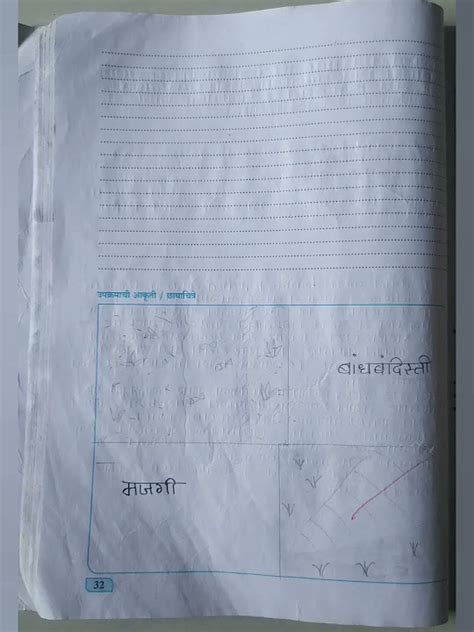 उपक्रमाची आकृती / छायाचित्र
बांधबंदिस्ती
मजगी
32